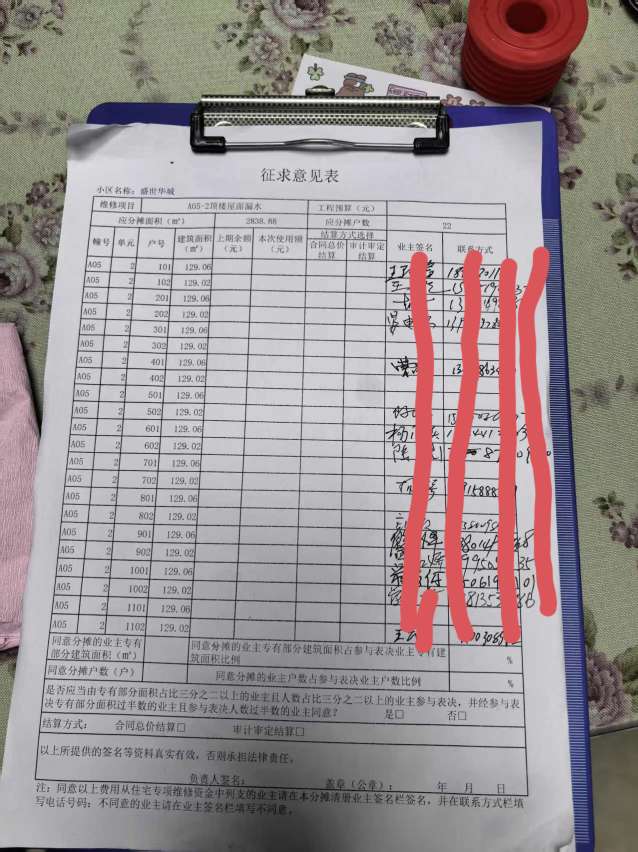 征求意见表
小区名称：盛世华城
维修项目 A05-2顶楼屋面漏水 工程预算（元）
应分摊面积（㎡） 2838.88 应分摊户数 22
幢号 单元 户号 建筑面积（㎡） 上期余额（元） 本次使用额（元） 结算方式选择 合同总价结算 审计审定结算 业主签名 联系方式
A05 2 101 129.06
A05 2 102 129.02
A05 2 201 129.06
A05 2 202 129.02
A05 2 301 129.06
A05 2 302 129.02
A05 2 401 129.06
A05 2 402 129.02
A05 2 501 129.06
A05 2 502 129.02
A05 2 601 129.06
A05 2 602 129.02
A05 2 701 129.06
A05 2 702 129.02
A05 2 801 129.06
A05 2 802 129.02
A05 2 901 129.06
A05 2 902 129.02
A05 2 1001 129.06
A05 2 1002 129.02
A05 2 1101 129.06
A05 2 1102 129.02
同意分摊的业主专有部分建筑面积（㎡） 同意分摊的业主专有部分建筑面积占参与表决业主专有建筑面积比例 %
同意分摊户数（户） 同意分摊的业主户数占参与表决业主户数比例 %
是否应当由专有部分面积占比三分之二以上的业主且人数占比三分之二以上的业主参与表决，并经参与表
决专有部分面积过半数的业主且参与表决人数过半数的业主同意？ 是□ 否□
结算方式： 合同总价结算□ 审计审定结算□
以上所提供的签名等资料真实有效，否则承担法律责任。
负责人签名： 盖章（公章）： 年 月 日
注：同意以上费用从住宅专项维修资金中列支的业主请在本分摊清册业主签名栏签名，并在联系方式栏填
写电话号码；不同意的业主请在业主签名栏填写不同意。